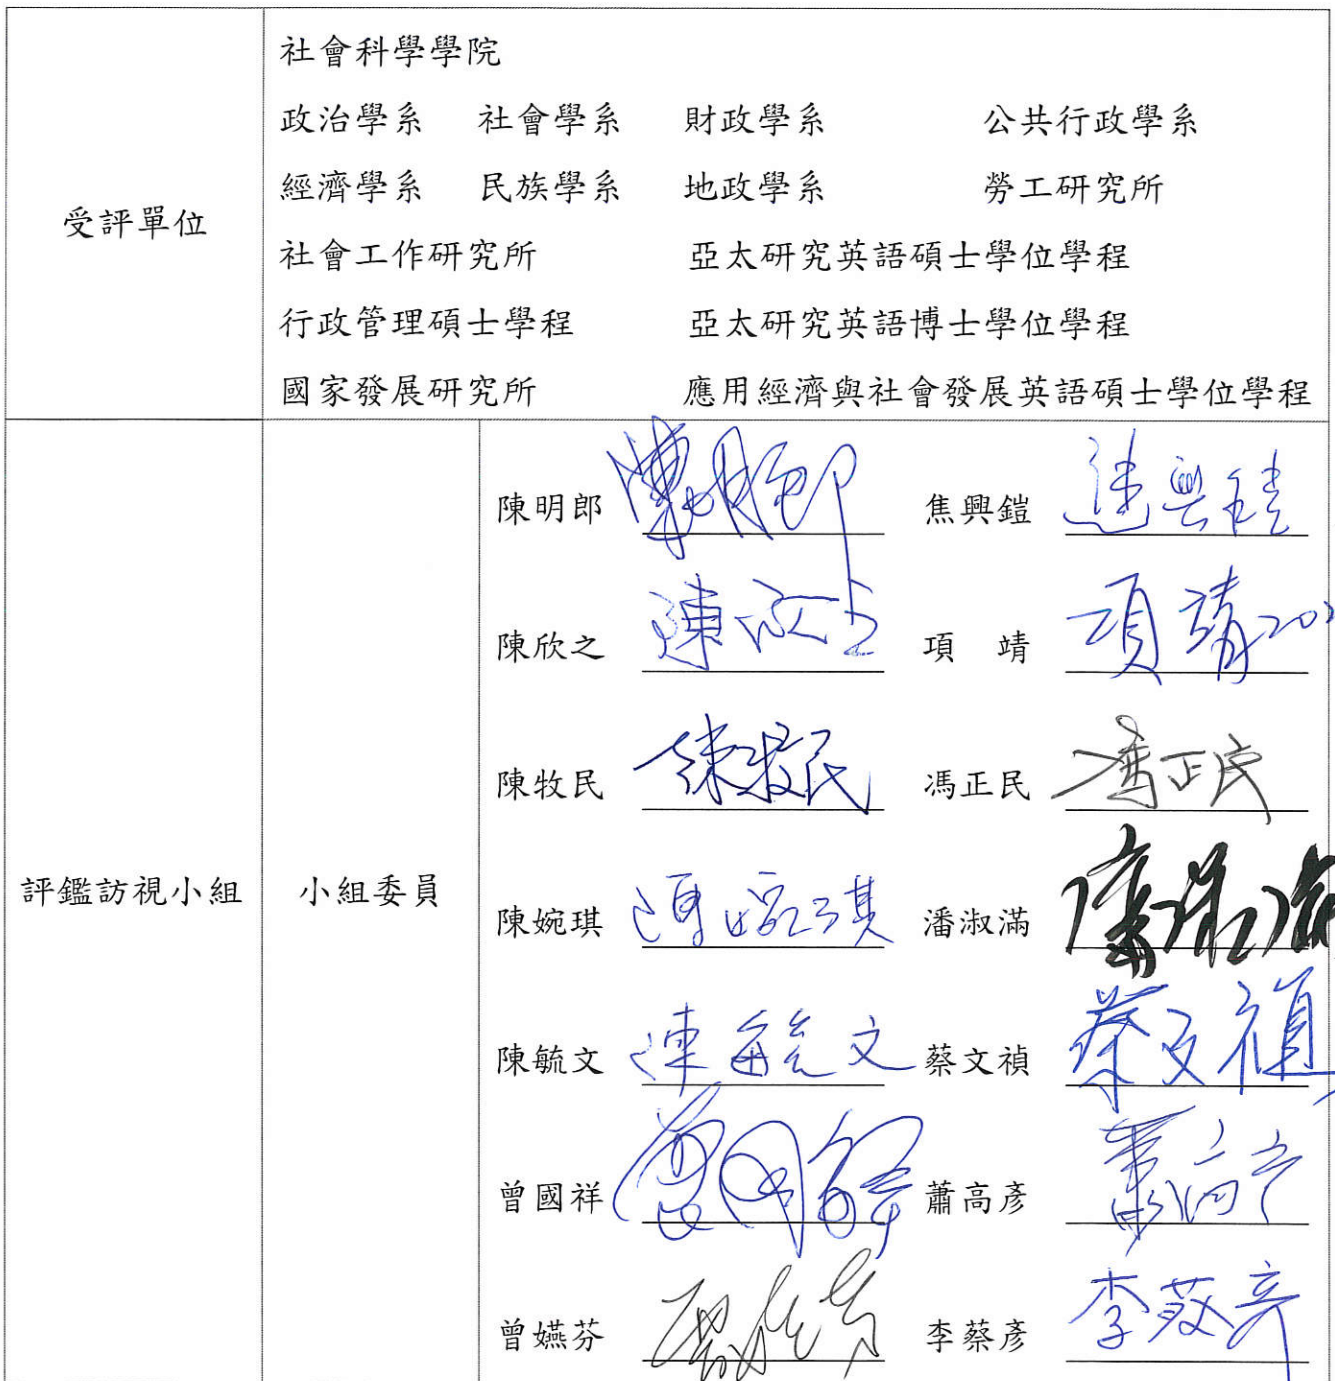 受評單位
社會科學學院
政治學系 社會學系 財政學系 公共行政學系
經濟學系 民族學系 地政學系 勞工研究所
社會工作研究所 亞太研究英語碩士學位學程
行政管理碩士學程 亞太研究英語博士學位學程
國家發展研究所 應用經濟與社會發展英語碩士學位學程
評鑑訪視小組
小組委員
陳明郎 陳明郎 焦興鎧 焦興鎧
陳欣之 陳欣之 項 靖 項靖
陳牧民 陳牧民 馮正民 馮正民
陳婉琪 陳婉琪 潘淑滿
陳毓文 陳毓文 蔡文禎 蔡文禎
曾國祥 曾國祥 蕭高彥 蕭高彥
曾嬿芬 李蔡彥 李蔡彥